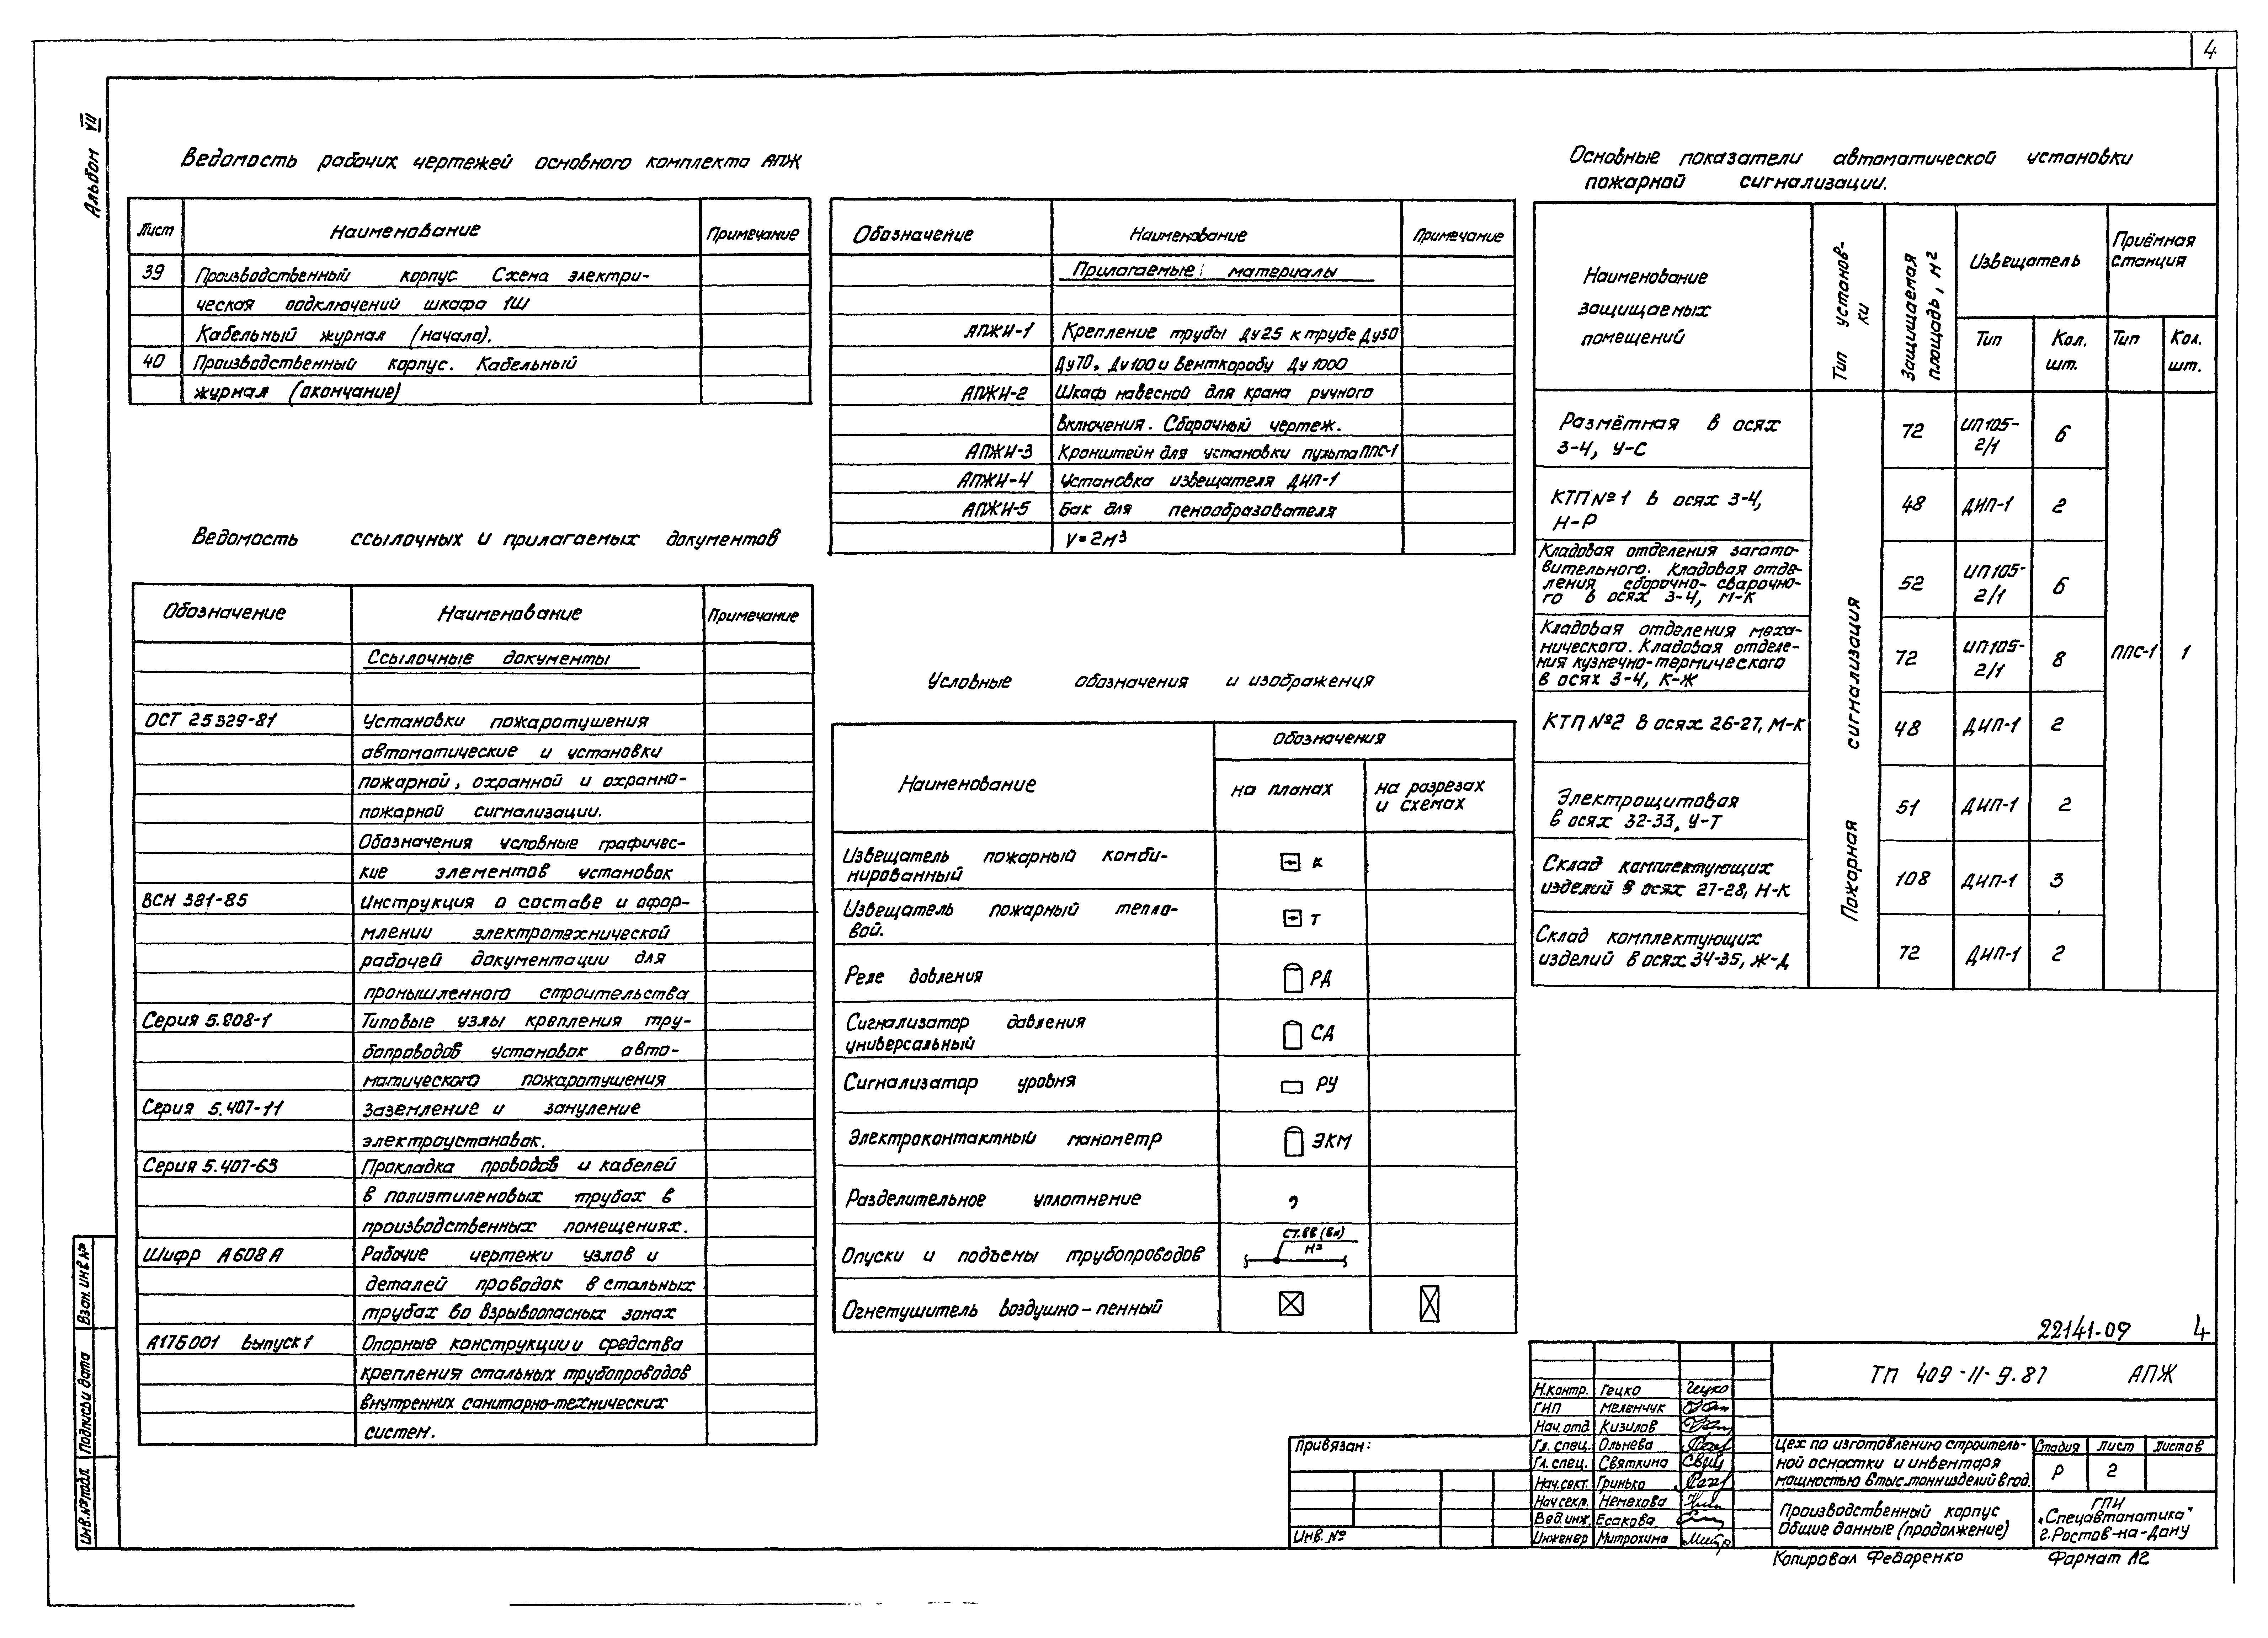 4
Альбом VII
Ведомость рабочих чертежей основного комплекта АПЖ
Лист Наименование Примечание
39 Производственный корпус Схема электри-
ческая подключений шкафа 1Ш
Кабельный журнал (начало).
40 Производственный корпус. Кабельный
журнал (окончание)
Ведомость ссылочных и прилагаемых документов
Обозначение Наименование Примечание
Ссылочные документы
ОСТ 25 329-81 Установки пожаротушения
автоматические и установки
пожарной, охранной и охранно-
пожарной сигнализации.
Обозначения условные графичес-
кие элементов установок
ВСН 381-85 Инструкция о составе и офор-
млении электротехнической
рабочей документации для
промышленного строительства
Серия 5.908-1 Типовые узлы крепления тру-
бопроводов установок авто-
матического пожаротушения
Серия 5.407-11 Заземление и зануление
электроустановок.
Серия 5.407-63 Прокладка проводов и кабелей
в полиэтиленовых трубах в
производственных помещениях.
Шифр А608А Рабочие чертежи узлов и
деталей проводок в стальных
трубах во взрывоопасных зонах
А175001 выпуск 1 Опорные конструкции и средства
крепления стальных трубопроводов
внутренних санитарно-технических
систем.
Обозначение Наименование Примечание
Прилагаемые материалы
АПЖИ-1 Крепление трубы Ду25 к трубе Ду50
Ду70, Ду100 и венткоробу Ду 1000
АПЖИ-2 Шкаф навесной для крана ручного
включения. Сборочный чертеж.
АПЖИ-3 Кронштейн для установки пульта ППС-1
АПЖИ-4 Установка извещателя ДИП-1
АПЖИ-5 Бак для пенообразователя
V=2м3
Условные обозначения и изображения
Наименование Обозначения
на планах на разрезах
и схемах
Извещатель пожарный комби-
нированный К
Извещатель пожарный тепло-
вой. Т
Реле давления РД
Сигнализатор давления
универсальный СД
Сигнализатор уровня РУ
Электроконтактный манометр ЭКМ
Разделительное уплотнение
Опуски и подъемы трубопроводов
Огнетушитель воздушно-пенный
Основные показатели автоматической установки
пожарной сигнализации.
Наименование
защищаемых
помещений
Тип установ-
ки
Защищаемая
площадь, м2
Извещатель
Приёмная
станция
Тип Кол. шт. Тип Кол. шт.
Размётная в осях
3-4, У-С 72 ИП105-
2/1 6
КТП №1 в осях 3-4,
Н-Р 48 ДИП-1 2
Кладовая отделения загото-
вительного. Кладовая отде-
ления сборочно-сварочно-
го в осях 3-4, М-К 52 ИП105-
2/1 6
Кладовая отделения меха-
нического. Кладовая отделе-
ния кузнечно-термического
в осях 3-4, К-Ж 72 ИП105-
2/1 8
ППС-1 1
КТП №2 в осях 26-27, М-К 48 ДИП-1 2
Электрощитовая
в осях 32-33, У-Т 51 ДИП-1 2
Склад комплектующих
изделий в осях 27-28, Н-К 108 ДИП-1 3
Склад комплектующих
изделий в осях 34-35, Ж-Д 72 ДИП-1 2
Пожарная сигнализация
22141-09 4
ТП 409-11-9.87 АПЖ
Н.контр. Гецко Гецко
ГИП Меленчук
Нач.отд Кизилов
Гл. спец. Ольнева
Гл. спец. Святкина
Нач.сект. Гринько
Нач сект. Немехова
Вед.инж. Есакова
Инженер Митрохина
Цех по изготовлению строитель-
ной оснастки и инвентаря
мощностью 6 тыс. тонн изделий в год.
Стадия Лист Листов
Р 2
Производственный корпус
Общие данные (продолжение)
ГПИ
"Спецавтоматика"
г.Ростов-на-Дону
Привязан:
Инв. №
Копировал Федоренко Формат А2
Взам. инв.№
Подпись и дата
Инв.№подл.